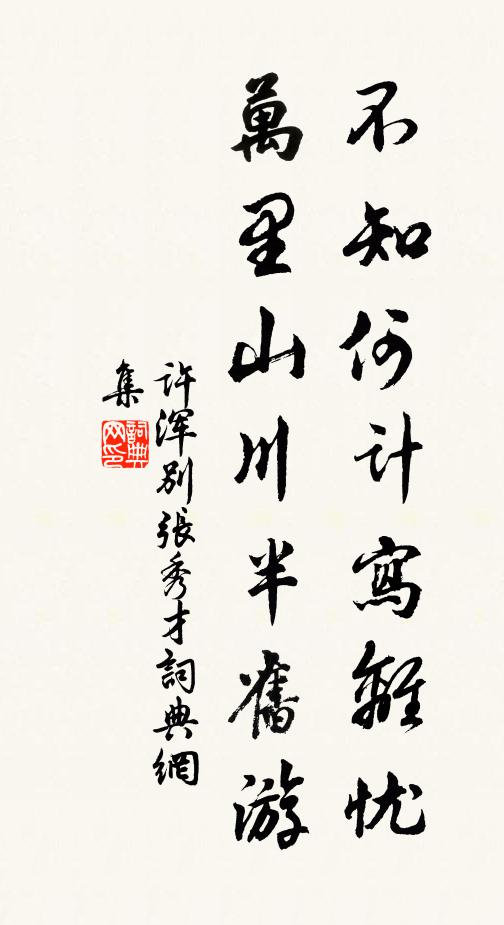 不知何计寫離忧
萬里山川半舊游
许浑别張秀才詞典網
集
詞典
网印